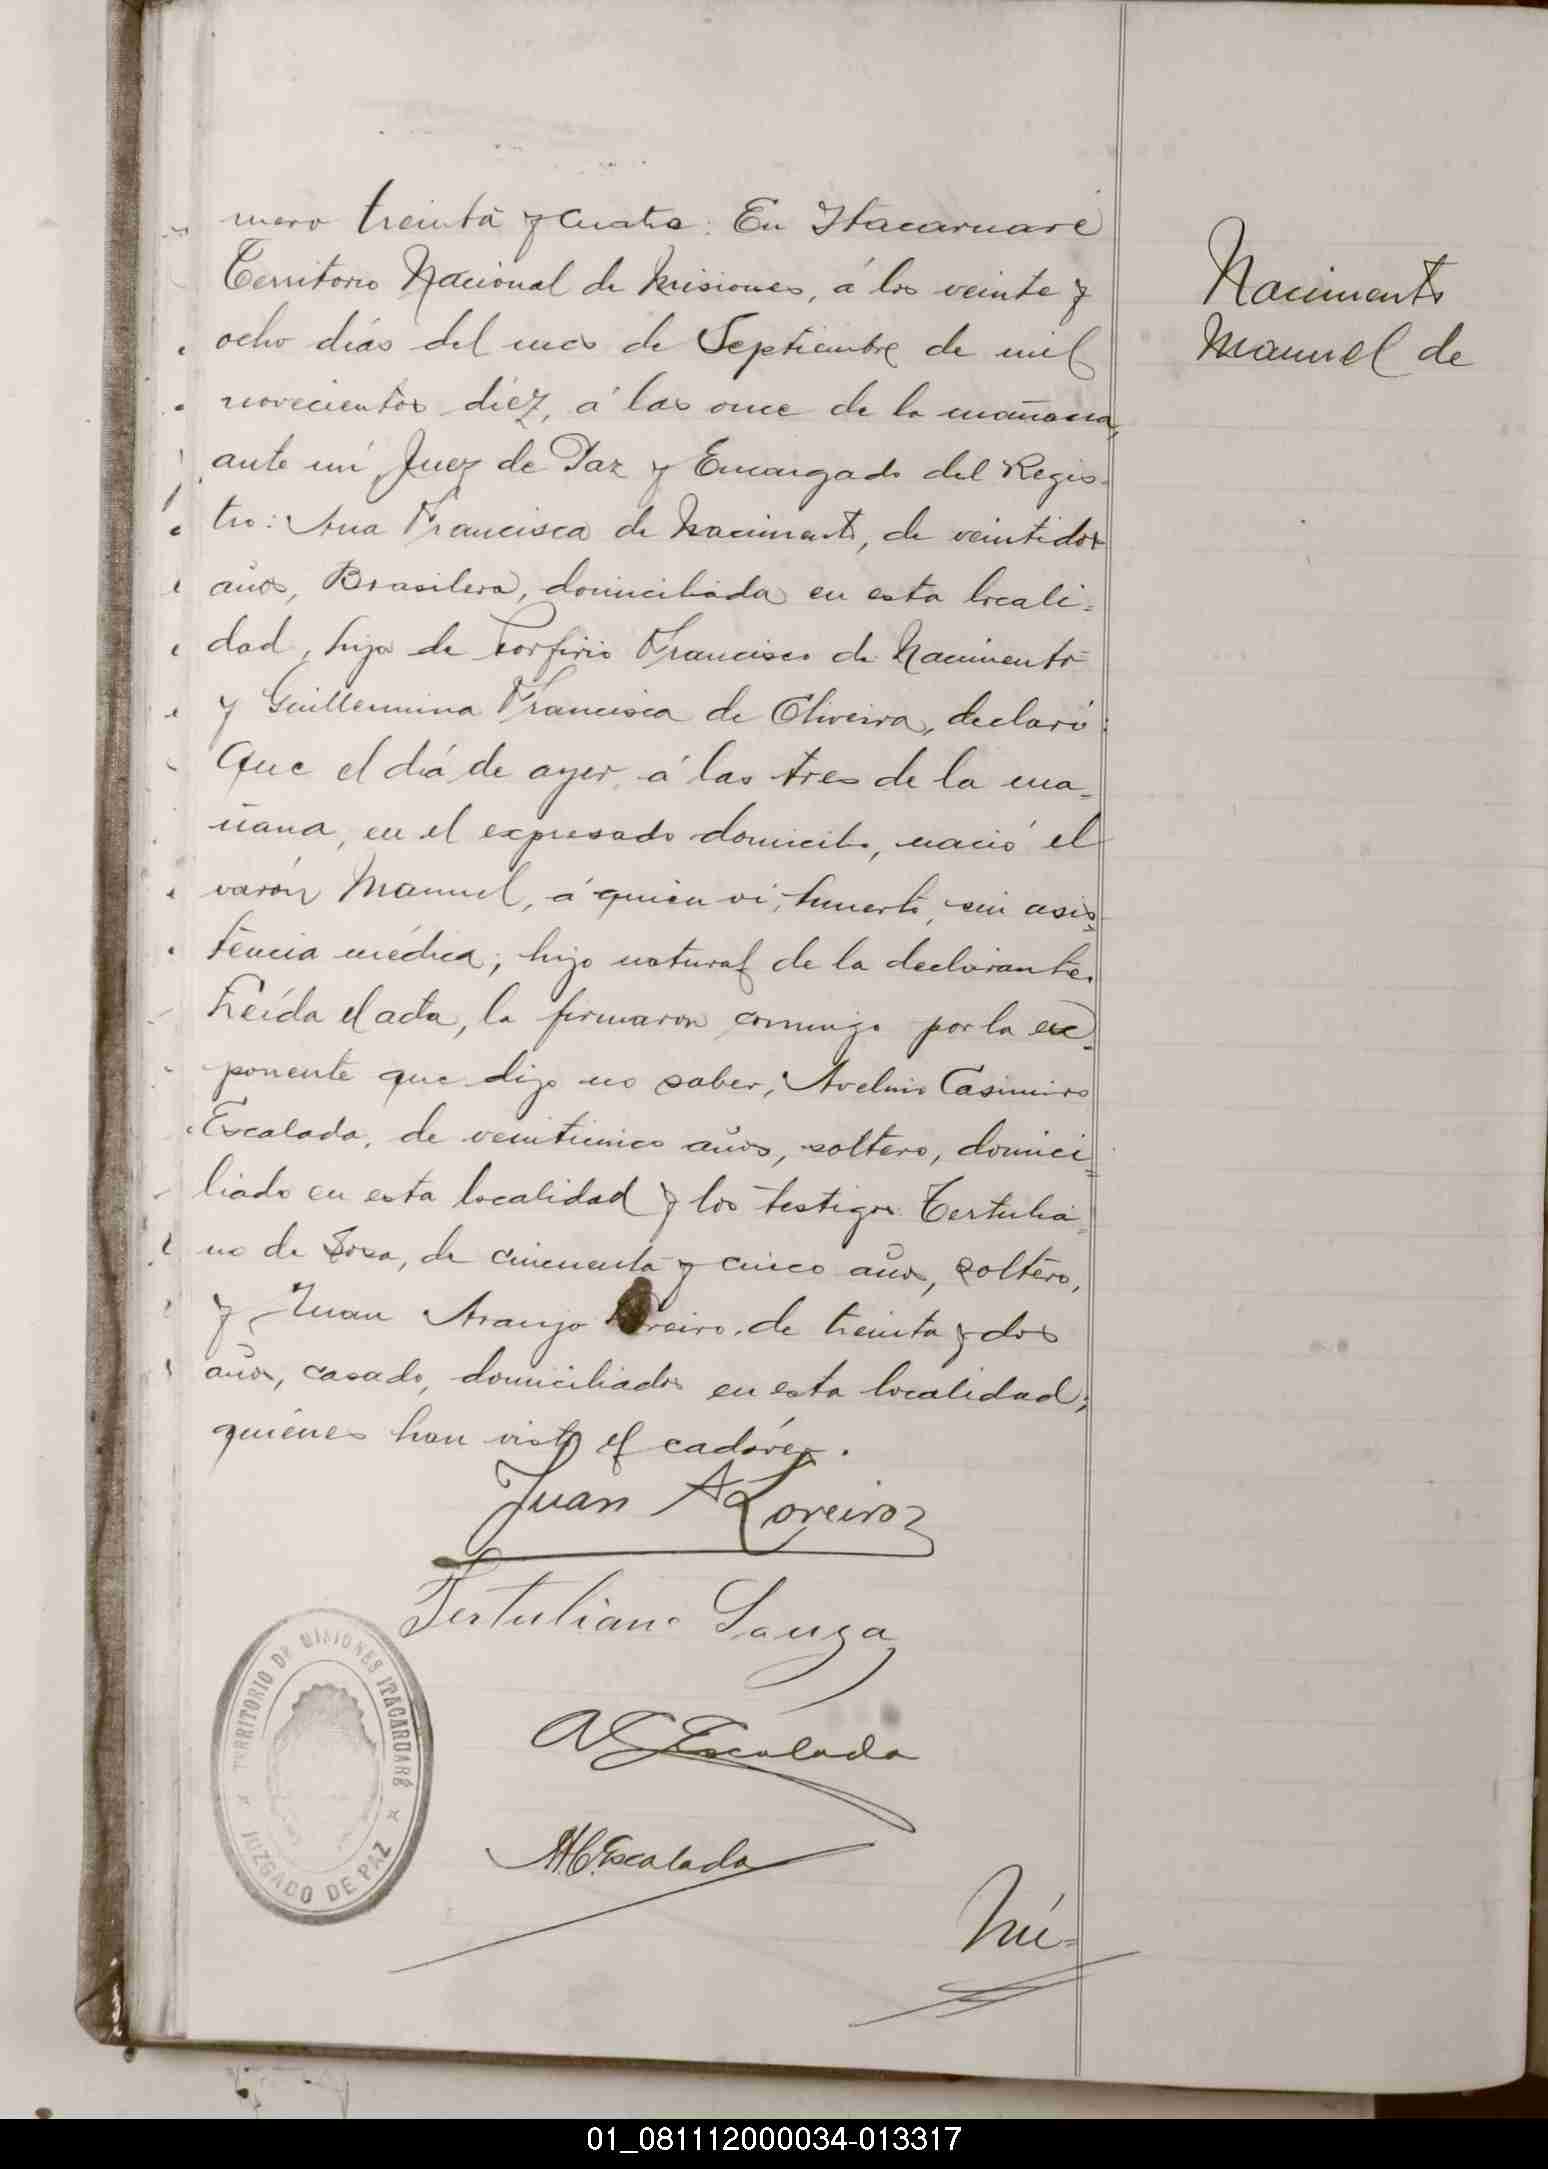 mero treinta y cuatro: En Itacaruaré
Territorio Nacional de Misiones, á los veinte y
ocho días del mes de Septiembre de mil
novecientos diez, á las once de la mañana,
ante mí, Juez de Paz y Encargado del Regis-
tro: Ana Francisca de Nacimento, de veintidos
años, Brasilera, domiciliada en esta locali=
dad, hija de Porfirio Francisco de Nacimento
y Guillermina Francisca de Oliveira, declaró:
Que el día de ayer, á las tres de la ma=
ñana, en el expresado domicilio, nació el
varón Manuel, á quien ví, muerto, sin asis=
tencia médica; hijo natural de la declarante.
Leída el acta, la firmaron conmigo por la ex=
ponente que dijo no saber, Avelino Casimiro
Escalada, de veinticinco años, soltero, domici=
liado en esta localidad y los testigos Tertulia=
no de Sosa, de cincuenta y cinco años, soltero,
y Juan Araujo Loreiro, de treinta y dos
años, casado, domiciliados en esta localidad;
quienes han visto el cadáver.
Juan A Loreiro
Tertuliano Sauza
A C Escalada
M. C. Escalada
Nú=
Nacimento
Manuel de
TERRITORIO DE MISIONES ITACARUARÉ
JUZGADO DE PAZ
01_081112000034-013317